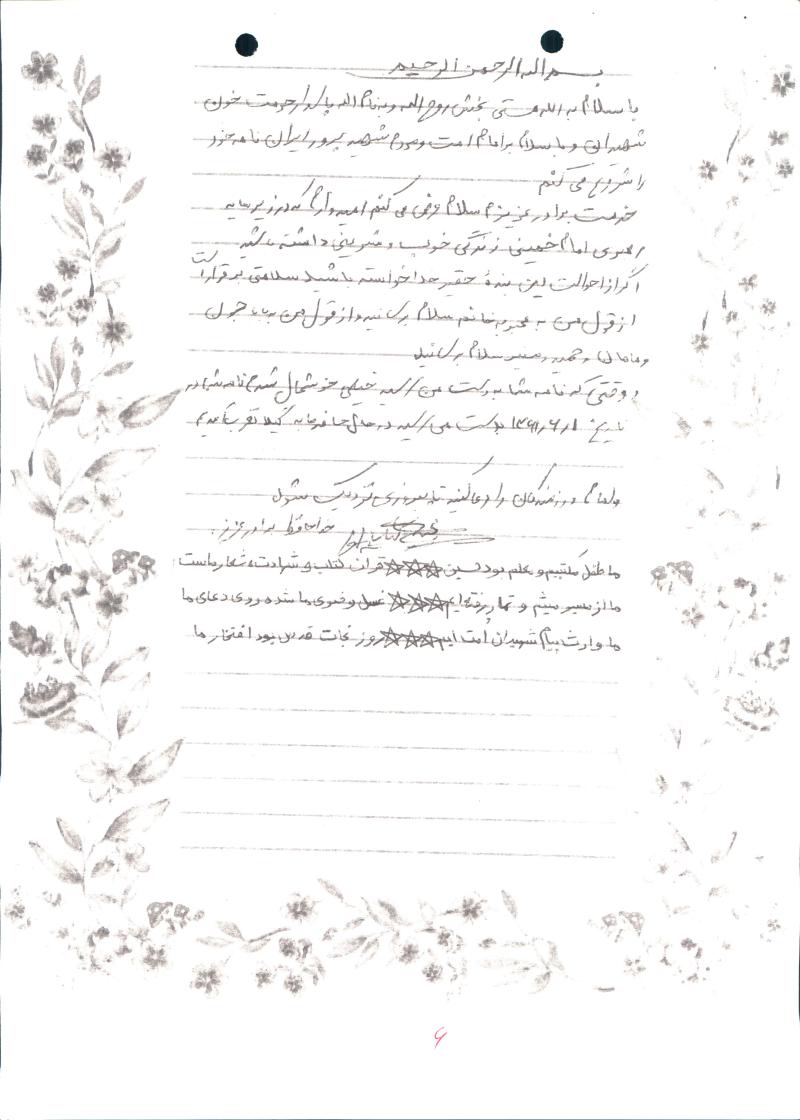 بسم الله الرحمن الرحیم
با سلام به الله هستی بخش روح الله و بنام الله پاسدار حرمت خون
شهیدان و با سلام بر امام امت و مردم شهید پرور ایران نامه خود
را شروع می کنم
خدمت برادر عزیزم سلام عرض می کنم امیدوارم که در زیر سایه
رهبری امام خمینی زندگی خوب و شیرینی داشته باشید
اگر از احوالت این بندهٔ حقیر خدا خواسته باشید سلامتی برقرار است
از قول من به محبوبه خانم سلام برسانید و از قول من به بابا
و ماما و حمید و سلام برسانید
وقتی که نامه شما بدست من رسید خیلی خوشحال شدم نامه شما در
تاریخ ۱۳۶۱٫۶٫۱ بدست من رسید در حال حاضر ما به
امام و رزمندگان را دعا کنید تا به پیروزی نزدیک شویم
خداحافظ برادر عزیز
ما طفل مکتبیم و معلم بود حسین قرآن کتاب و شهادت شعار ماست
ما از مسیر و غسل وضوی ما شده روی دعای ما
ما وارث پیام شهیدان امت ایم روز نجات قدس بود افتخار ما
۶